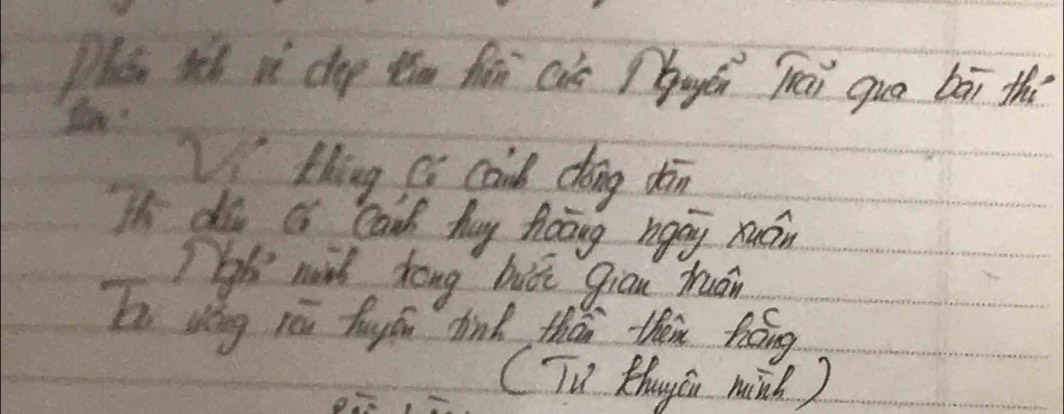 Phân tích vẻ đẹp tâm hồn của Nguyễn Trãi qua bài thơ
sau:
Ví không có cảnh đông tàn
Thì đâu có cảnh huy hoàng ngày xuân
Nghĩ mình trong bước gian truân
Tai ương rèn luyện tinh thần thêm hăng
(Tự khuyên mình)